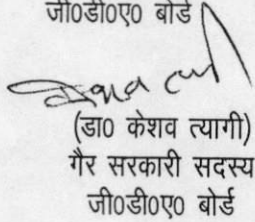 जी0डी0ए0 बोर्ड
(डा0 केशव त्यागी)
गैर सरकारी सदस्य
जी0डी0ए0 बोर्ड